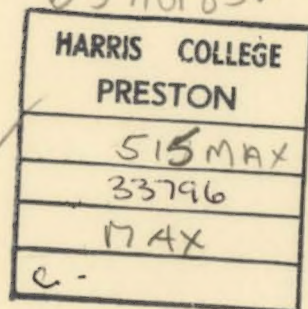 HARRIS COLLEGE
PRESTON
515 MAX
33796
MAX
C.-